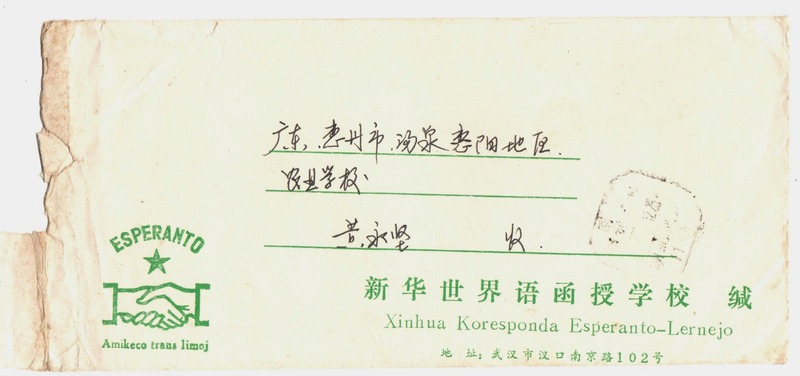 广东,惠州市,汤泉惠阳地区.
学校
黄永坚 收.
ESPERANTO
Amikeco trans limoj
新华世界语函授学校 缄
Xinhua Koresponda Esperanto-Lernejo
地 址:武汉市汉口南京路102号